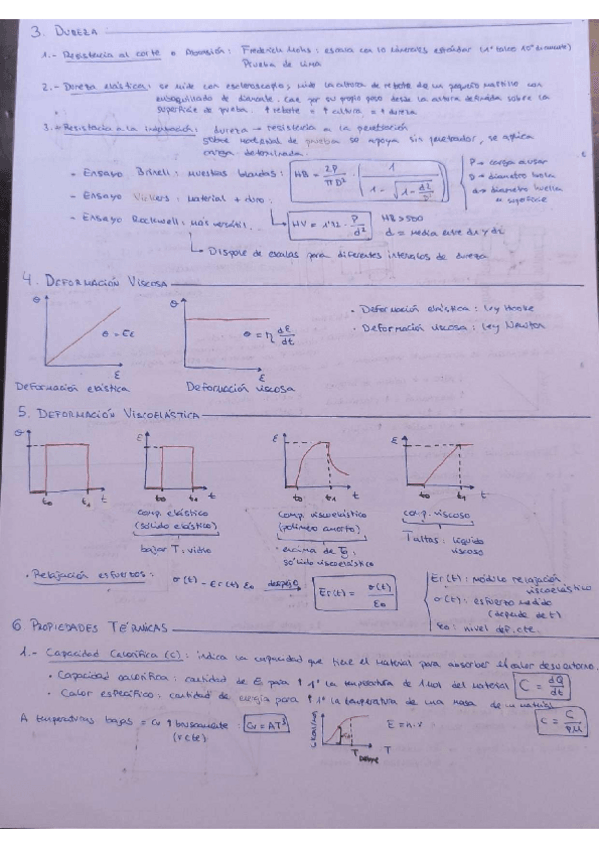 3. DUREZA
1.- Resistencia al corte o abrasión: Frederich Mohs: escala con 10 minerales estándar (1º talco 10º diamante)
Prueba de Lima
2.- Dureza elástica: se mide con escleroscopio, mide la altura de rebote de un pequeño martillo con
de diamante. Cae por su propio peso desde la altura definida sobre la
superficie de prueba. ↑ rebote = ↑ altura = ↑ dureza
3.- Resistencia a la indentación: dureza → resistencia a la penetración
sobre material de prueba se apoya sin penetrador, se aplica
carga determinada.
- Ensayo Brinell: muestras blandas: HB = 2P / πD² · ( 1 / 1 - √(1 - d²/D²) )
P → carga a usar
D → diametro bola
d → diametro huella
superficie
- Ensayo Vickers: material + duro:
HV = 1'92 · P/d²
HB > 500
d = media entre d1 y d2
- Ensayo Rockwell: más versátil.
↳ Dispone de escalas para diferentes intervalos de dureza
4. DEFORMACIÓN VISCOSA
σ
σ = Eε
ε
Deformación elástica
σ
σ = η dε/dt
ε
Deformación viscosa
• Deformación elástica: ley Hooke
• Deformación viscosa: ley Newton
5. DEFORMACIÓN VISCOELÁSTICA
σ t0 t1 t
ε t0 t1 t
ε t0 t1 t
ε t0 t1 t
comp. elástico
(sólido elástico)
bajas T: vidrio
comp. viscoelástico
(polímero amorfo)
• encima de Tg:
sólido viscoelástico
comp. viscoso
T altas: líquido
viscoso
• Relajación esfuerzos: σ(t) - Er(t) ε0 despejo Er(t) = σ(t) / ε0
Er(t): módulo relajación
viscoelástico
σ(t): esfuerzo medido
(depende de t)
ε0: nivel def. cte.
6. PROPIEDADES TÉRMICAS
1.- Capacidad Calorífica (C): indica la capacidad que tiene el material para absorber el calor de su entorno.
• Capacidad calorífica: cantidad de E para ↑ 1º la temperatura de 1 mol del material C = dQ/dt
• Calor específico: cantidad de energía para ↑ 1º la temperatura de una masa de material
c = C / PM
A temperaturas bajas = Cv ↑ bruscamente: Cv = AT³
(V cte)
E = h·ν
T